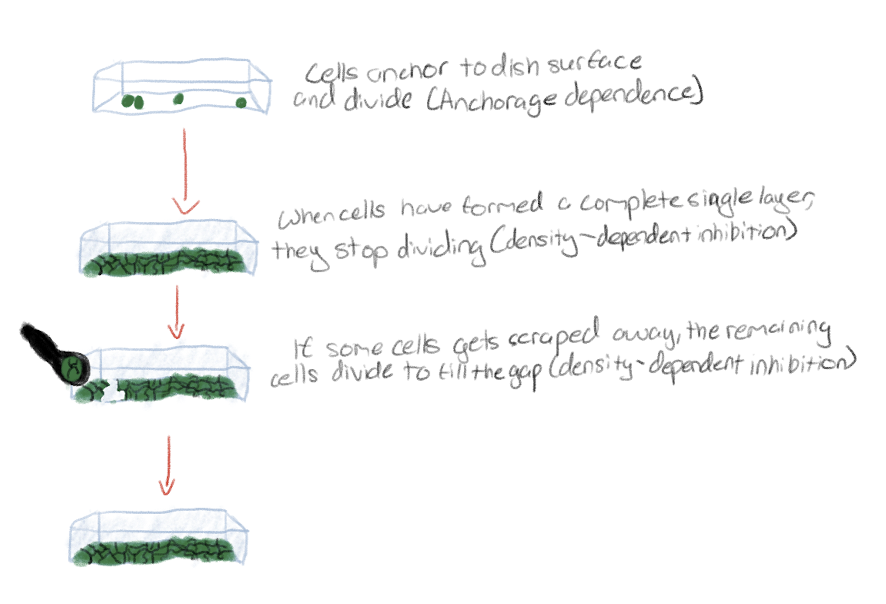 Cells anchor to dish surface
and divide (Anchorage dependence)
When cells have formed a complete single layer,
they stop dividing (density-dependent inhibition)
If some cells gets scraped away, the remaining
cells divide to fill the gap (density-dependent inhibition)